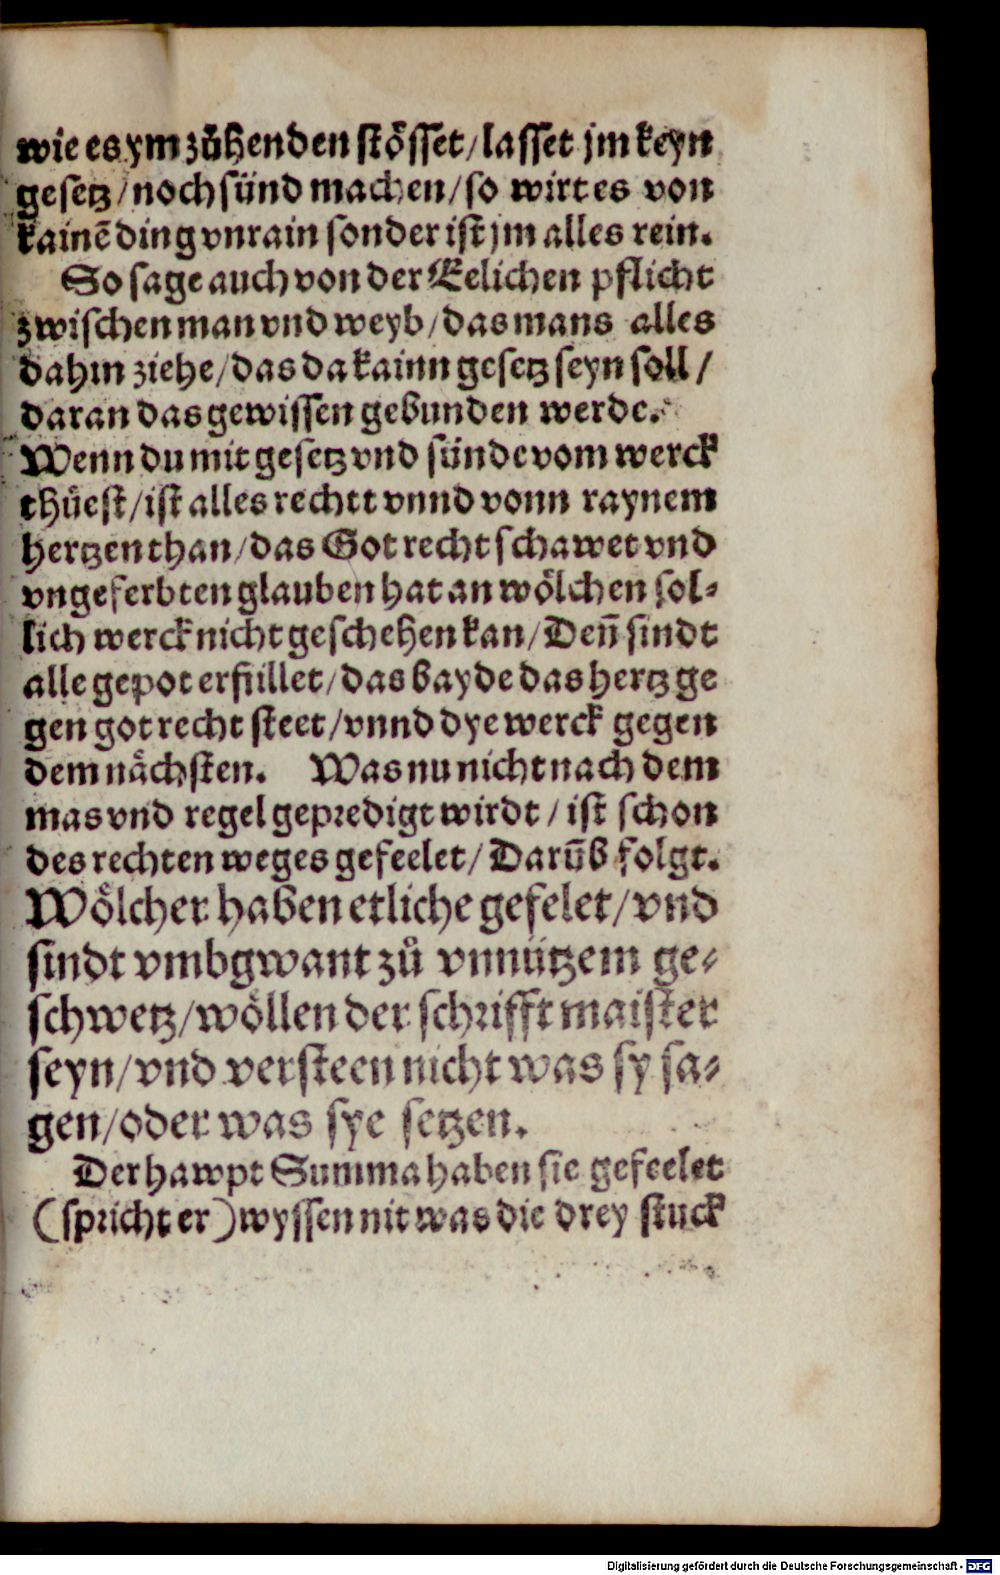 wie es ym zůhenden stôsset/lasset jm keyn
gesetz/noch sünd machen/so wirt es von
kainē ding vnrain sonder ist jm alles rein.
So sage auch von der Eelichen pflicht
zwischen man vnd weyb/das mans alles
dahin ziehe/das da kainn gesetz seyn soll/
daran das gewissen gebunden werde.
Wenn du mit gesetz vnd sünde vom werck
thůest/ist alles rechtt vnnd vonn raynem
hertzen than/das Got recht schawet vnd
vngeferbten glauben hat an wôlchen sol-
lich werck nicht geschehen kan/Deñ sindt
alle gepot erfüllet/das bayde das hertz ge
gen got recht steet/vnnd dye werck gegen
dem nâchsten. Was nu nicht nach dem
mas vnd regel gepredigt wirdt/ist schon
des rechten weges gefeelet/Darūb folgt.
Wôlcher haben etliche gefelet/vnd
sindt vmbgwant zů vnnützem ge-
schwetz/wôllen der schrifft maister
seyn/vnd versteen nicht was sy sa-
gen/oder was sye setzen.
Der hawpt Summa haben sie gefeelet
(spricht er) wyssen nit was die drey stuck
Digitalisierung gefördert durch die Deutsche Forschungsgemeinschaft - DFG